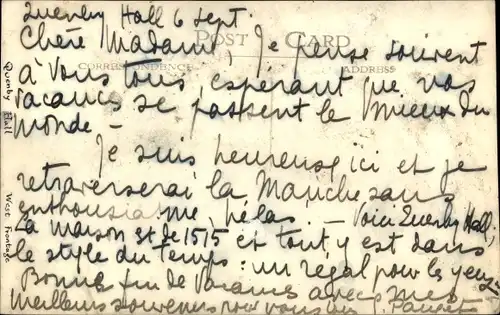 Quenby Hall 6 sept.
POST CARD
CORRESPONDENCE
ADDRESS
Chère Madame, Je pense souvent
à vous tous, espérant que vos
vacances se passent le mieux du
monde –
Je suis heureuse ici et je
retraverserai la Manche sans
enthousiasme, hélas. – Voici Quenby Hall.
La maison est de 1515 et tout y est dans
le style du temps : un régal pour les yeux
Bonne fin de vacances avec mes
meilleurs souvenirs pour vous
Quenby Hall
West Frontage